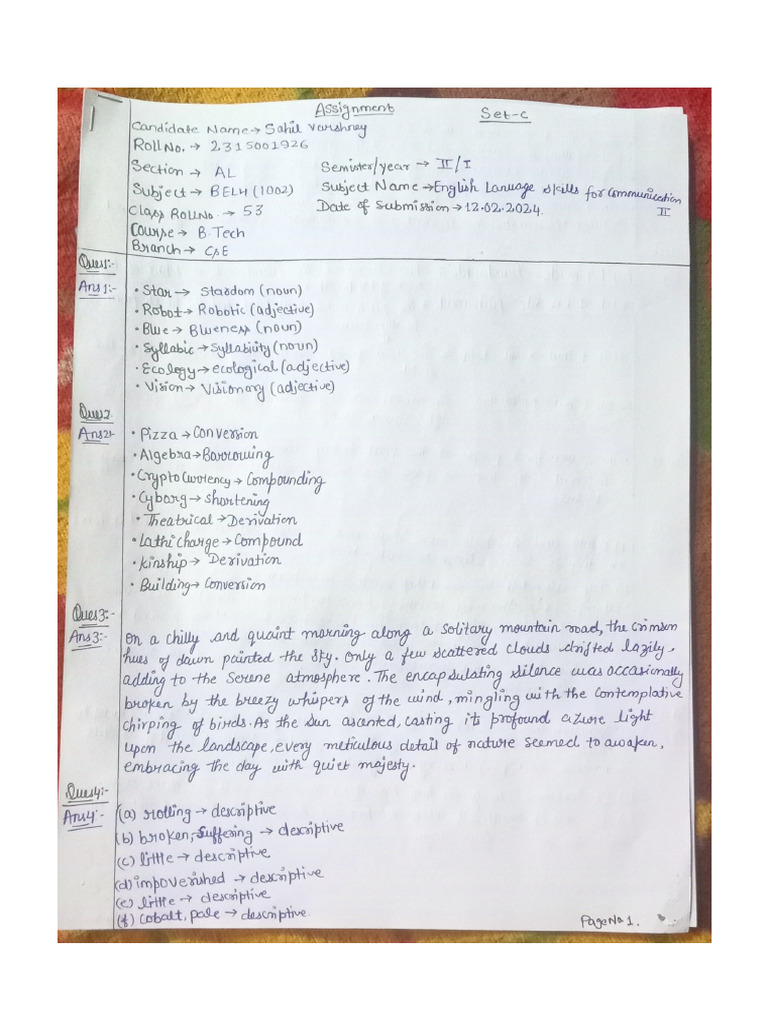 Assignment Set-C
Candidate Name→ Sahil Varshney
Roll No. → 2315001926
Section → AL Semister/year → II/I
Subject → BELH (1002) Subject Name →English Lanuage skills for communication II
Class RollNo. → 53 Date of Submission →12.02.2024.
Course → B Tech
Branch → CSE
Ques1:-
Ans 1:- • Star → Stardom (noun)
• Robot→ Robotic (adjective)
• Blue → Blueness (noun)
• Syllabic → Syllabicity (noun)
• Ecology→ ecological (adjective)
• Vision→ Visionary (adjective)
Ques2.
Ans2:- • Pizza → Conversion
• Algebra→Borrowing
• Crypto Currency → Compounding
• Cyborg → shortening
• Theatrical →Derivation
• Lathi charge → Compound
• Kinship → Derivation
• Building→ Conversion
Ques3:-
Ans3:- On a chilly and quaint morning along a solitary mountain road, the crimson
hues of dawn painted the sky. Only a few scattered clouds drifted lazily,
adding to the serene atmosphere. The encapsulating silence was occasionally
broken by the breezy whispers of the wind, mingling with the contemplative
chirping of birds. As the sun ascented, casting its profound azure light
upon the landscape, every meticulous detail of nature seemed to awaken,
embracing the day with quiet majesty.
Ques4:-
Ans4:- (a) rolling → descriptive
(b) broken, suffering → descriptive
(c) little → descriptive
(d) impoverished → descriptive
(e) little → descriptive
(f) cobalt, pale → descriptive.
Page No 1.